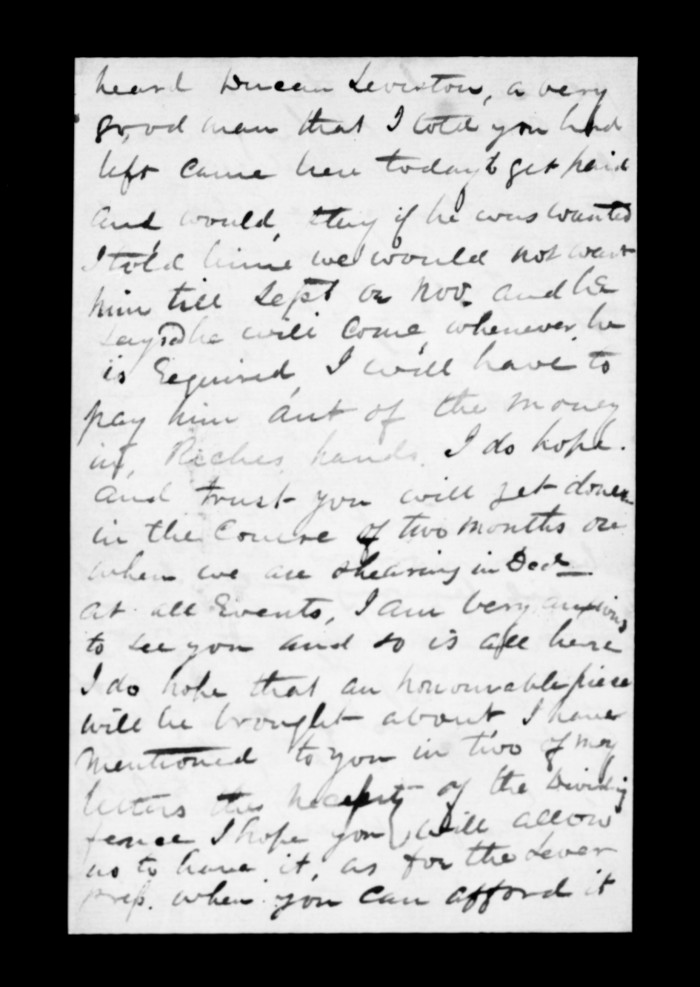 heard Duncan Leviston, a very
good man that I told you had
left came here today to get paid
and would stay if he was wanted
I told him we would not want
him till Sept or Nov. and he
says he will come whenever he
is Required, I will have to
pay him out of the money
in Riches hands. I do hope
and trust you will get down
in the Course of two months or
when we are shearing in Decr
at all Events, I am very anxious
to see you and so is all here
I do hope that an honourable piece
will be brought about I have
Mentioned to you in two of my
letters the necessity of the Dividing
fence I hope you will allow
us to have it, as for the Lever
press. when you can afford it